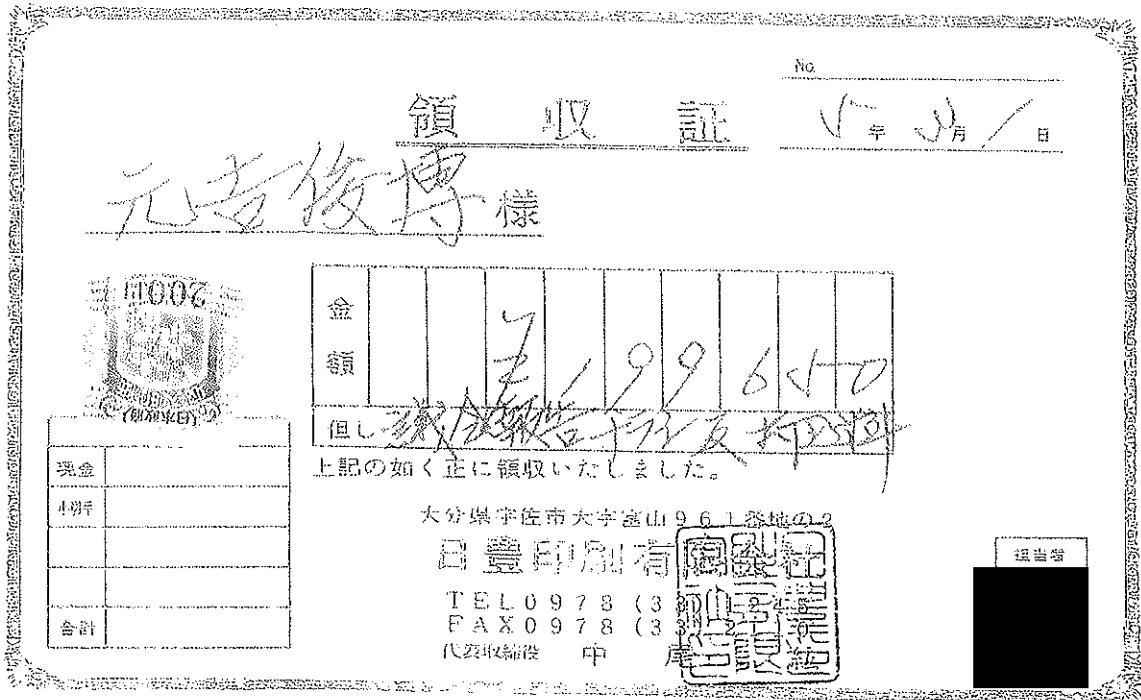 No.
領収証
5年3月1日
元吉俊博様
200円
金額 ¥199650
但し 議会報告 印刷
上記の如く正に領収いたしました。
現金
小切手
合計
大分県宇佐市大字富山961番地の2
日豊印刷有限会社
TEL0978(33)
FAX0978(33)
代表取締役 中尾
担当者